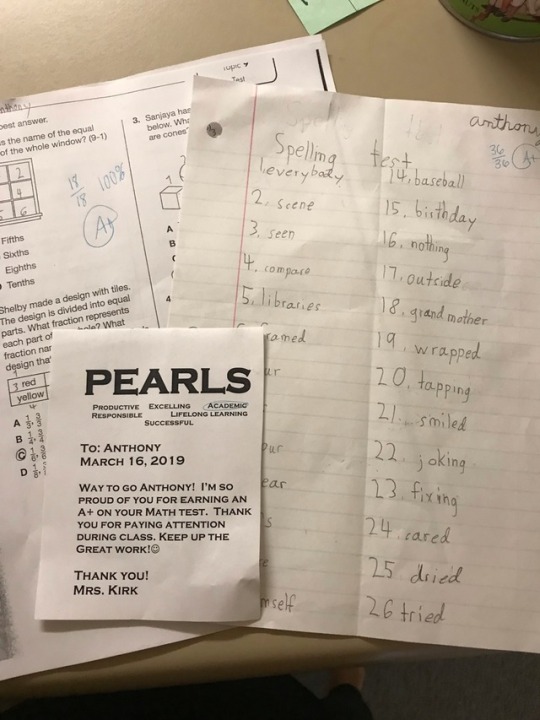 Anthony
best answer.
is the name of the equal
of the whole window? (9-1)
2
4
5 6
Fifths
Sixths
Eighths
Tenths
18/18 100%
A+
Topic 7
Test
3. Sanjaya has
below. Wha
are cones
1
A
B
C
4
Shelby made a design with tiles.
The design is divided into equal
parts. What fraction represents
each part of
hole? What
fraction nam
design that
3 red
yellow
4
A
B
C
D
PEARLS
PRODUCTIVE EXCELLING ACADEMIC
RESPONSIBLE LIFELONG LEARNING
SUCCESSFUL
TO: ANTHONY
MARCH 16, 2019
WAY TO GO ANTHONY! I'M SO
PROUD OF YOU FOR EARNING AN
A+ ON YOUR MATH TEST. THANK
YOU FOR PAYING ATTENTION
DURING CLASS. KEEP UP THE
GREAT WORK!☺
THANK YOU!
MRS. KIRK
anthony
36/36 A+
Spelling test
1. everybaty
2. scene
3. seen
4. compare
5. libraries
ramed
ur
our
ear
s
e
mself
14. baseball
15. birthday
16. nothing
17. outside
18. grand mother
19. wrapped
20. tapping
21. smiled
22. joking
23. fixing
24. cared
25 dried
26 tried